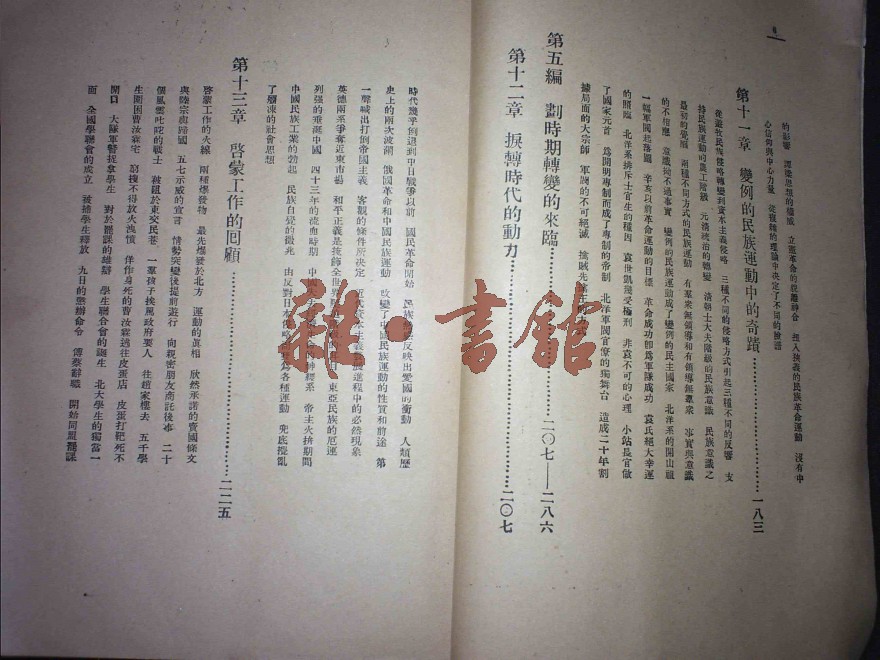 六
的影響 譚變思想的權威 立憲革命的貌離神合 投入狹義的民族革命運動 沒有中
心信仰與中心力量 從複雜的理論中決定了不同的繪譜
第十一章 變例的民族運動中的奇蹟……一八三
從遊牧民族侵略轉變到資本主義侵略 三種不同的侵略方式引起三種不同的反響 支
持民族運動的農工階級 元清統治的轉變 清朝士大夫階級的民族意識 民族意識之
最初的覺醒 兩種不同方式的民族運動 有羣衆無領導和有領導無羣衆 事實與意識
的不相應 意識拗不過事實 變例的民族運動成了變例的民主國家 北洋系的開山祖
一幅軍閥起落圖 辛亥以前革命運動的目標 革命成功卽爲軍隊成功 袁氏絕大幸運
的照臨 北洋系排斥士官生的種因 袁世凱幾受極刑 非袁不可的心理 小站長官做
了國家元首 爲開明專制而成了專制的帝制 北洋軍閥官僚的獨舞台 造成二十年割
據局面的大宗師 軍閥的不可絕滅 搶賊先搶王的
第五編 劃時期轉變的來臨……二〇七——二八六
第十二章 捩轉時代的動力……二〇七
時代幾乎倒退到中日戰爭以前 國民革命開始 民族 反映出愛國的衝動 人類歷
史上的兩次波濤 俄國革命和中國民族運動 改變了中國民族運動的性質和前途 第
一聲喊出打倒帝國主義 客觀的條件所決定 近代資本主義發展進程中的必然現象
英德兩系爭奪近東市場 和平正義是掩飾全世界 日 東亞民族的厄運
列强的垂涎中國 四十三年的流動時期 中國 神經系 帝主火拚期間
中國民族工業的勃起 民族自覺的徵兆 由反對日本 爲各種運動 兜底攪亂
了凝凍的社會思想
第十三章 啓蒙工作的囘顧……二二五
啓蒙工作的火線 兩種爆發物 最先爆發於北方 運動的眞相 欣然承諾的賣國條文
與陸宗輿諸國 五七示威的宣言 情勢突變後提前遊行 向親密朋友商託後事 二十
個風雲叱咤的戰士 被阻於東交民巷 一羣孩子挨罵政府要人 往趙家樓去 五千學
生圍困曹汝霖宅 窮搜不得放火洩憤 佯作身死的曹汝霖逃往皮蛋店 皮蛋打靶死不
閉口 大隊軍警捉拿學生 對於罷課的雄辯 學生聯合會的誕生 北大學生的獨當一
面 全國學聯會的成立 被捕學生釋放 九日的懲辦命令 傅蔡辭職 開始同盟罷課
雜·書舘